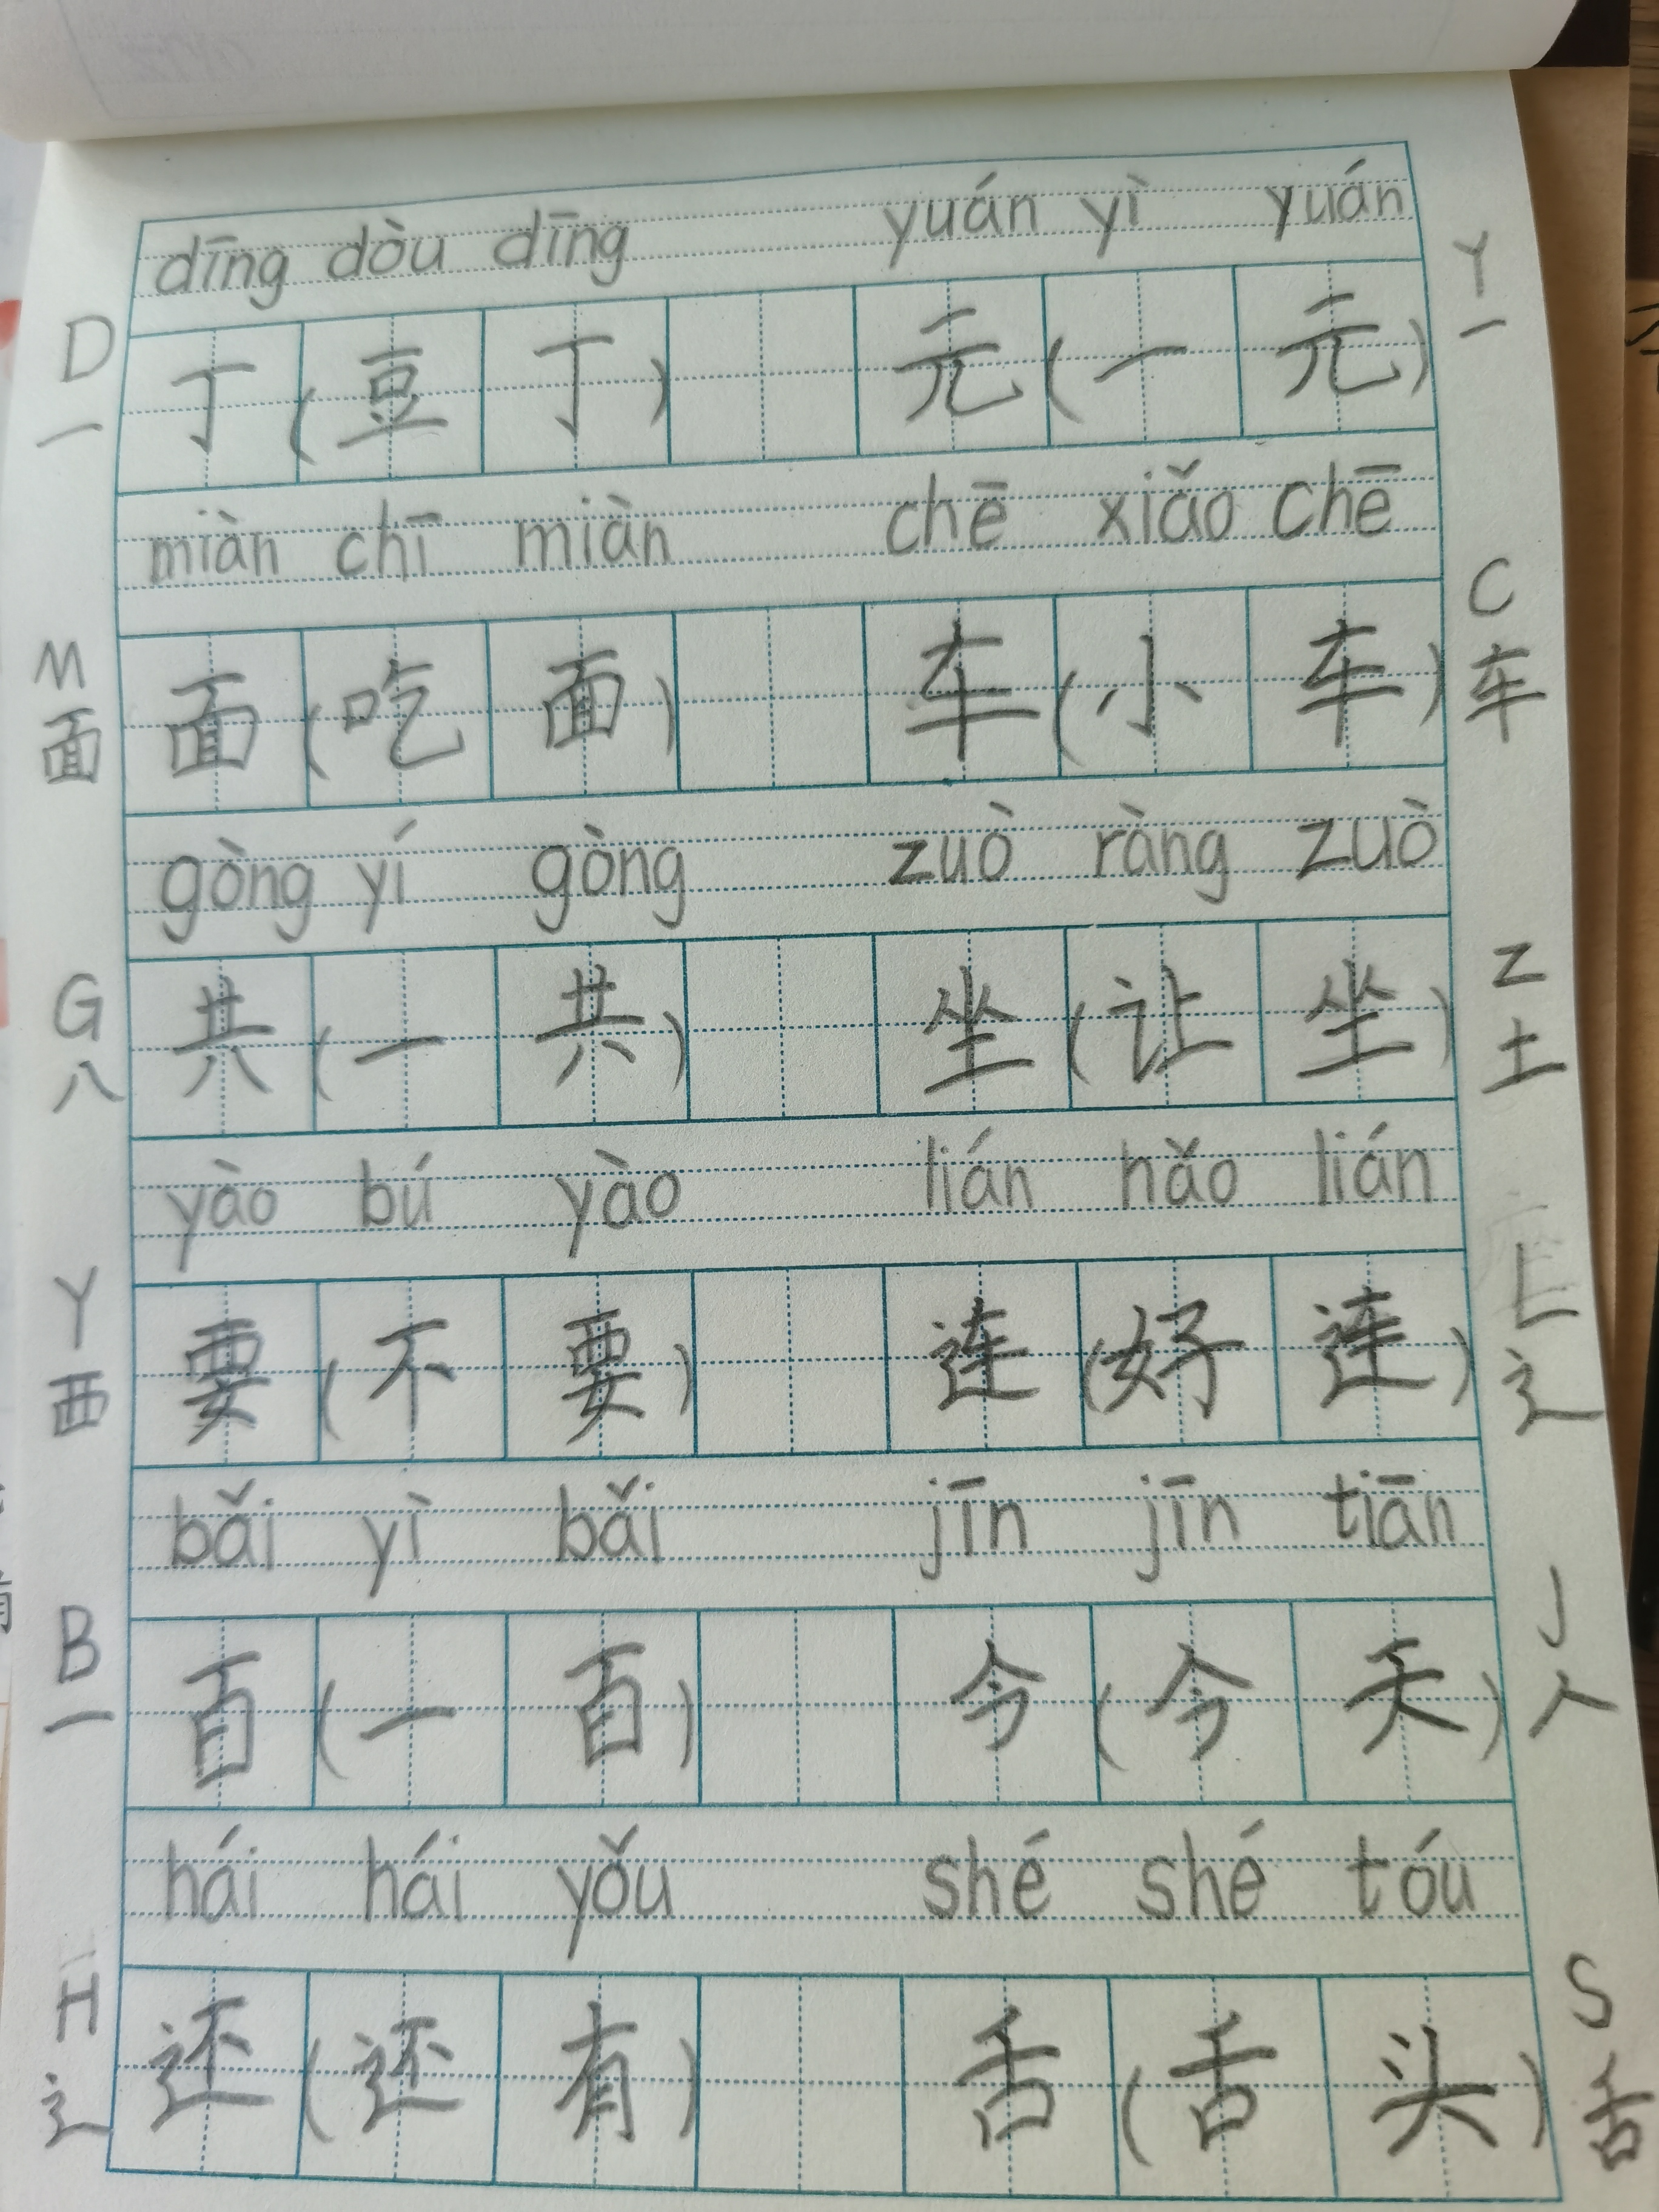 dīng dòu dīng yuán yì yuán
D 丁(豆丁) 元(一元) Y
一 一
miàn chī miàn chē xiǎo chē
M 面(吃面) 车(小车) C
面 车
gòng yí gòng zuò ràng zuò
G 共(一共) 坐(让坐) Z
八 土
yào bú yào lián hǎo lián
Y 要(不要) 连(好连) L
西 辶
bǎi yì bǎi jīn jīn tiān
B 百(一百) 今(今天) J
一 人
hái hái yǒu shé shé tóu
H 还(还有) 舌(舌头) S
辶 舌